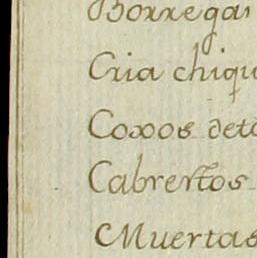 Borregas
Cria chiqu
Coxos deto
Cabrestos
Muertas